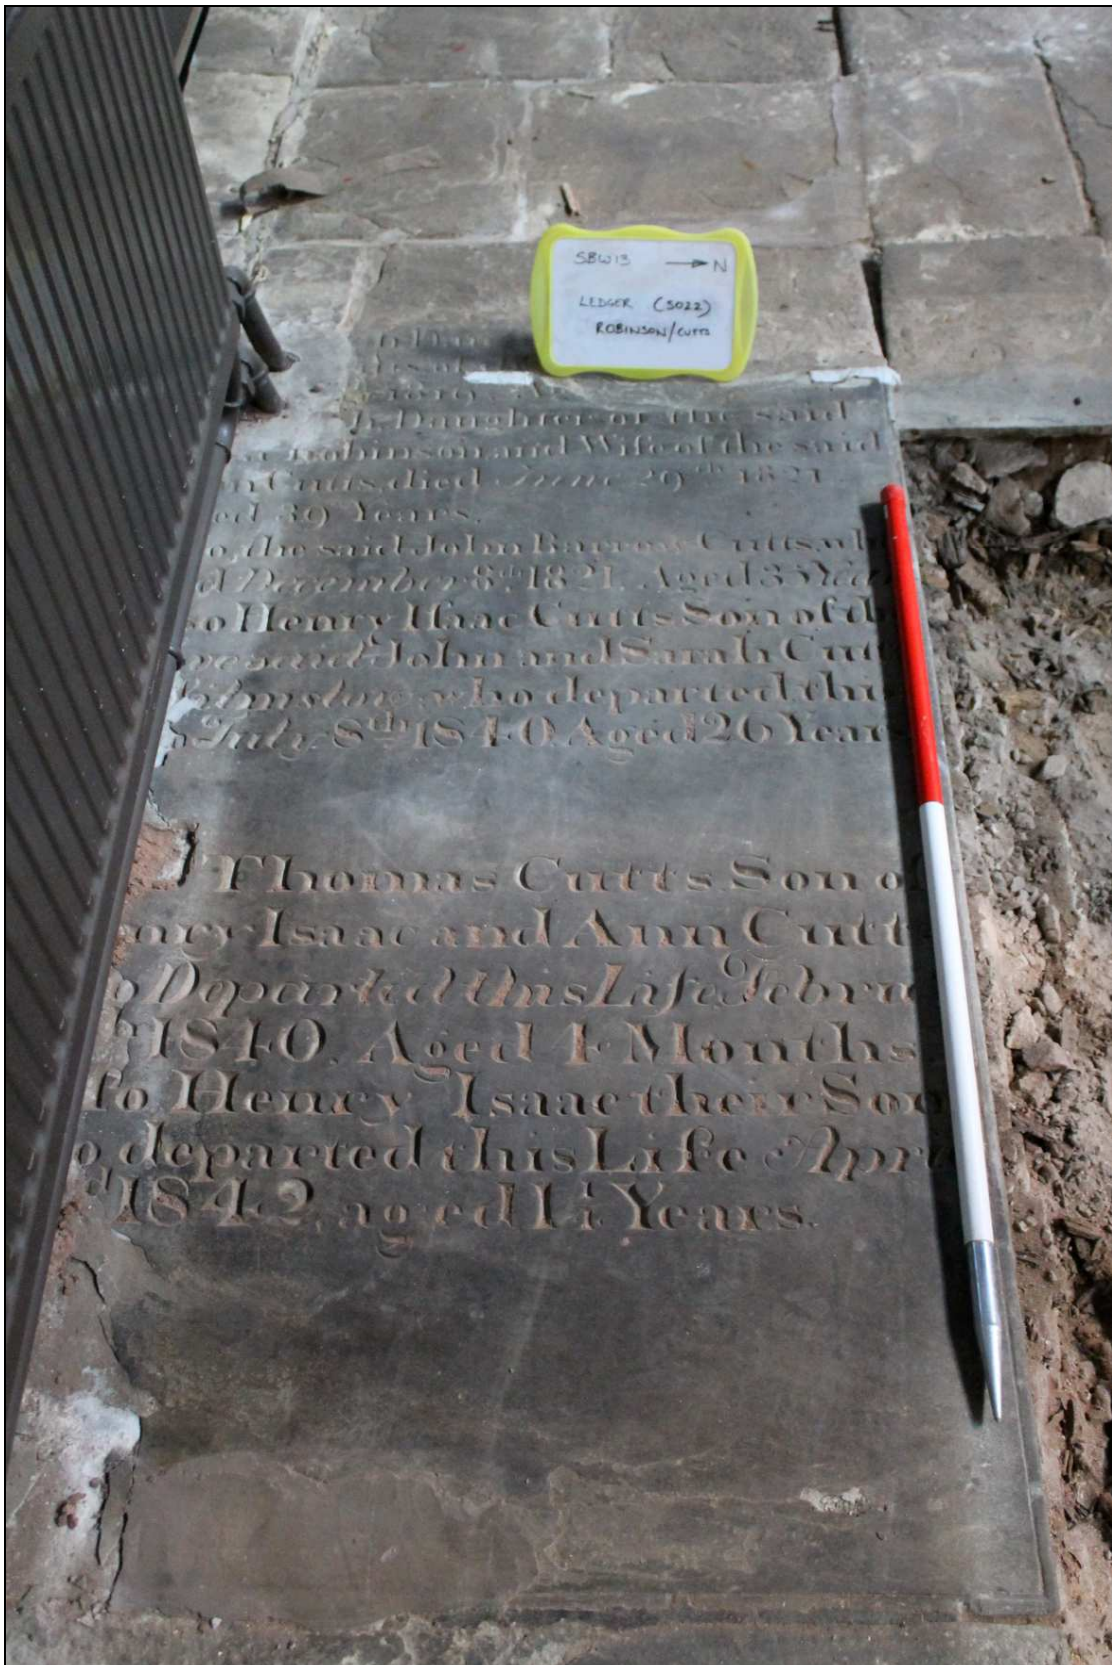 SBW13 → N
LEDGER (5022)
ROBINSON/CUTTS
1819.
h Daughter of the said
Robinson and Wife of the said
n Cutts, died June 29th 1821
ed 39 Years.
o, the said John Barrow Cutts, wh
d December 8th 1821. Aged 35 Year
so Henry Isaac Cutts Son of th
ve said John and Sarah Cutt
ilmslow, who departed this
July 8th 1840. Aged 26 Years
Thomas Cutts Son of
enry Isaac and Ann Cutts
o Departed this Life Februa
1840. Aged 4 Months
lso Henry Isaac their Son
o departed this Life Apri
d 1842, aged 1¼ Years.